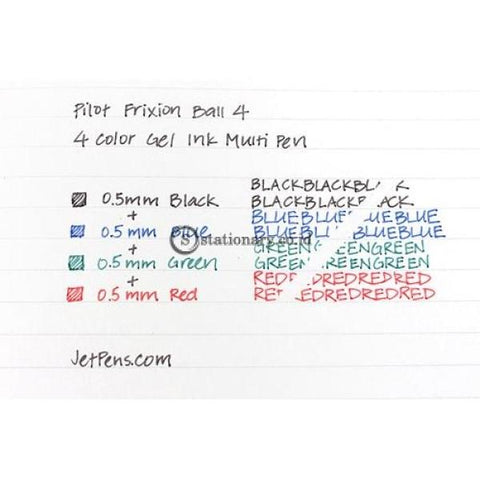 Pilot Frixion Ball 4
4 Color Gel Ink Multi Pen
0.5mm Black
+
0.5mm Blue
+
0.5mm Green
+
0.5mm Red
BLACKBLACKBL CK
BLACKBLACKB ACK
BLUEBLUE UEBLUE
BLUEBLU BLUEBLUE
GREEN EENGREEN
GREEN REENGREEN
RED DREDREDRED
RE EDREDREDRED
stationary.co.id
JetPens.com